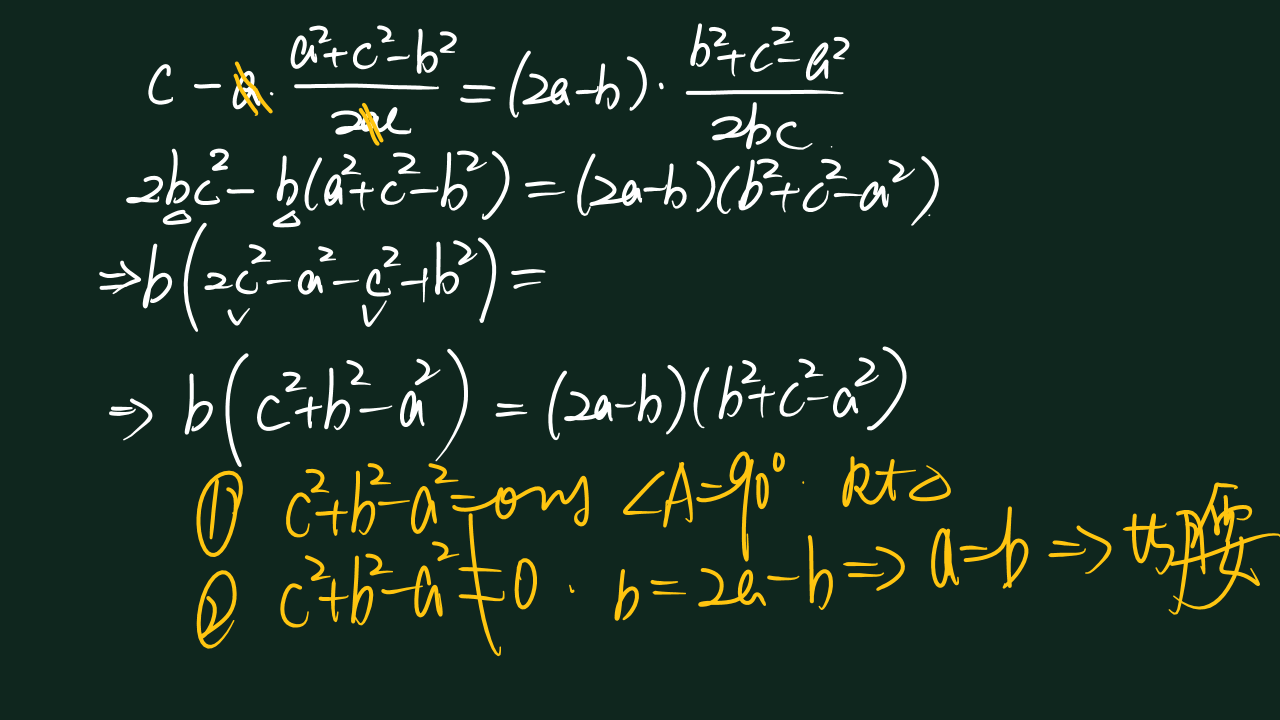 c - a · (a²+c²-b²)/(2ac) = (2a-b) · (b²+c²-a²)/(2bc)
2bc² - b(a²+c²-b²) = (2a-b)(b²+c²-a²)
⇒ b(2c²-a²-c²+b²) =
⇒ b(c²+b²-a²) = (2a-b)(b²+c²-a²)
① c²+b²-a²=0 ∠A=90° Rt△
② c²+b²-a²≠0 · b=2a-b ⇒ a=b ⇒ 腰